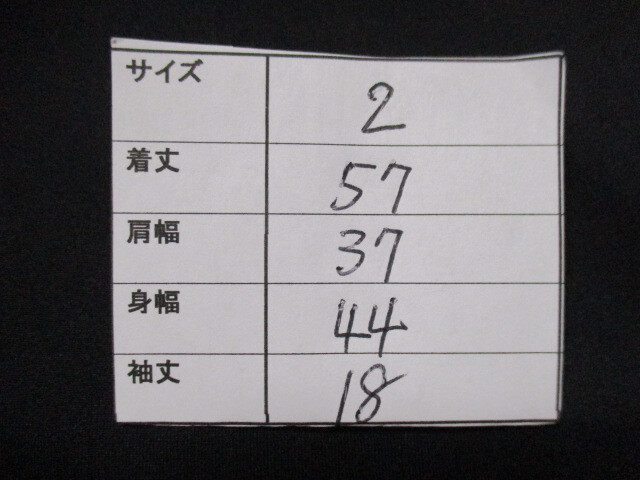 サイズ 2
着丈 57
肩幅 37
身幅 44
袖丈 18